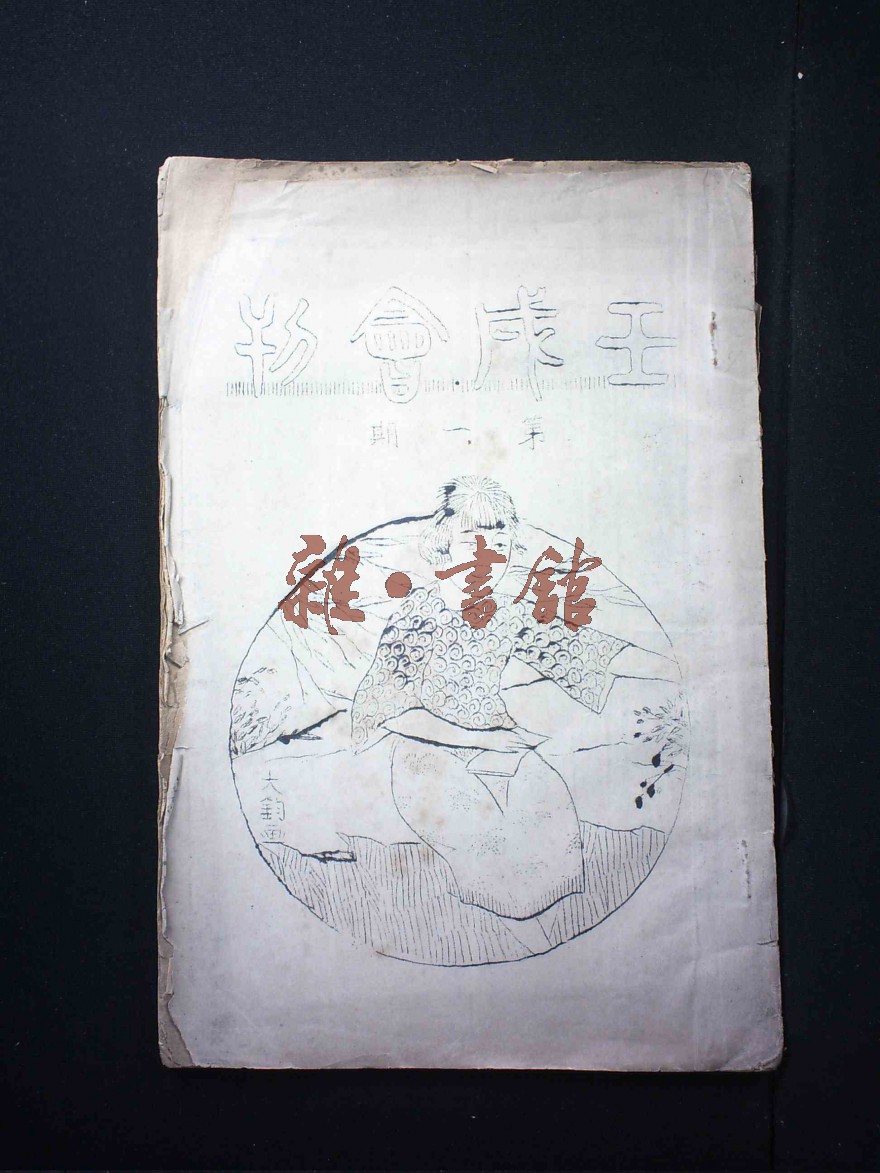 壬戌會刊
第一期
雜·書館
大鈞画